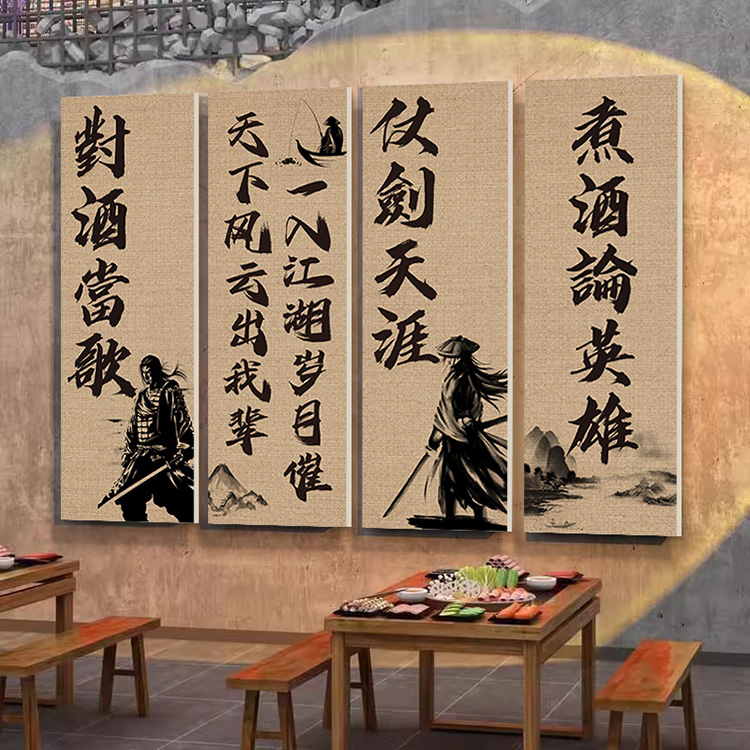 對酒當歌
天下风云出我辈
一入江湖岁月催
仗劍天涯
煮酒論英雄